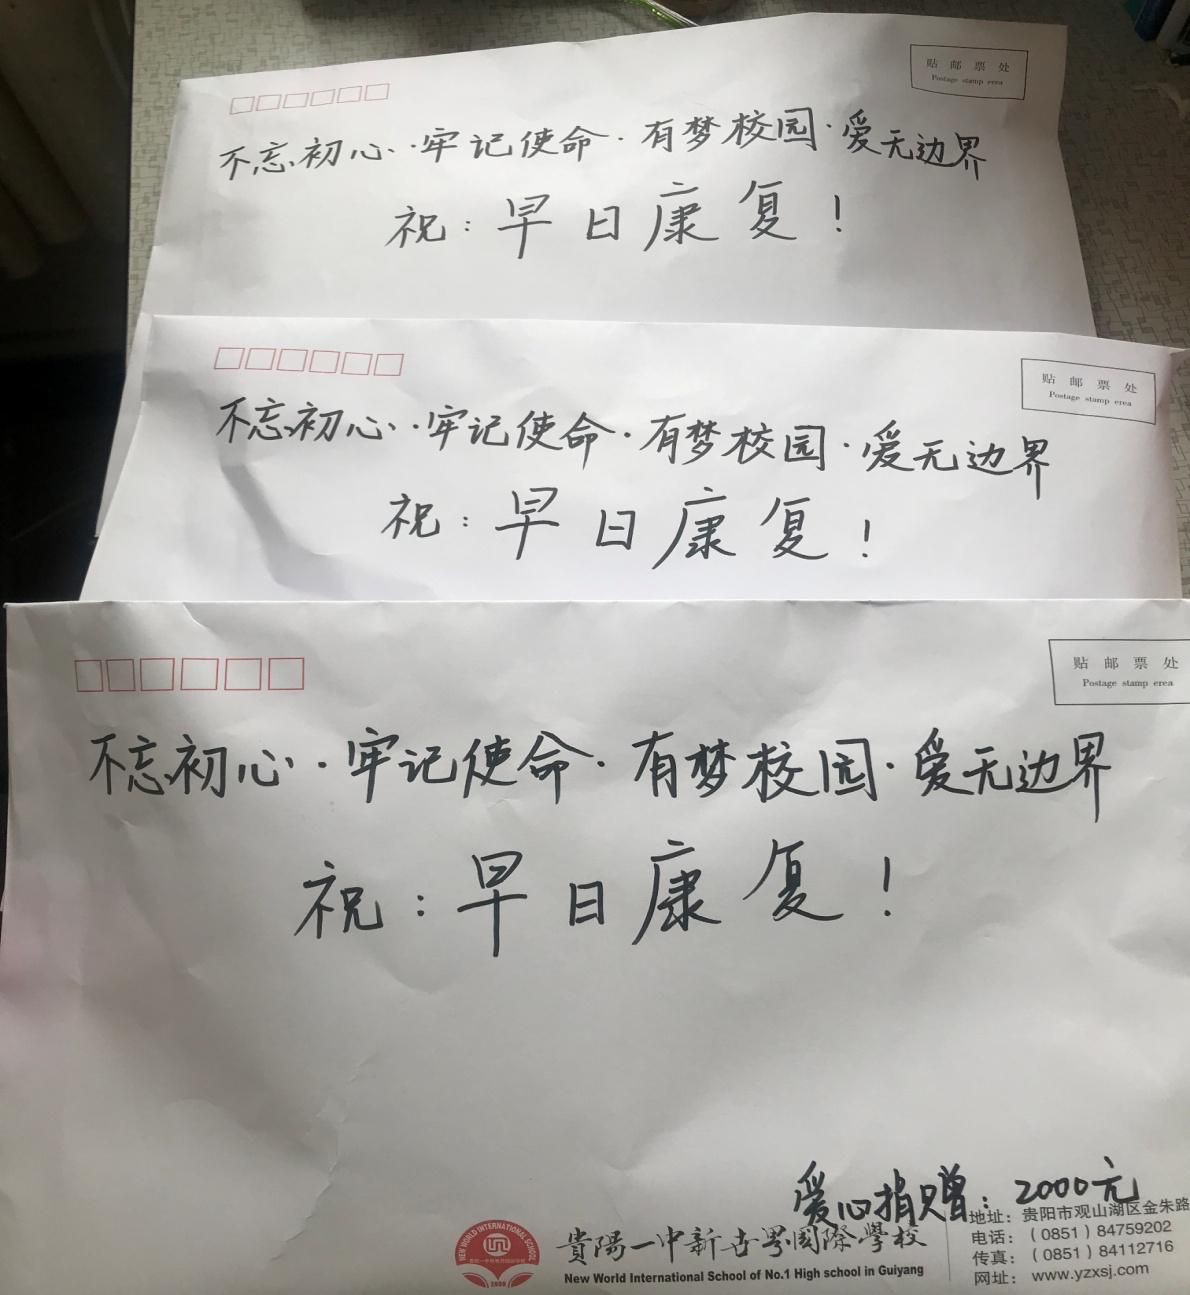 贴 邮 票 处
Postage stamp erea
不忘初心··牢记使命·有梦校园·爱无边界
祝:早日康复!
贴 邮 票 处
Postage stamp erea
不忘初心··牢记使命·有梦校园·爱无边界
祝:早日康复!
贴 邮 票 处
Postage stamp erea
不忘初心··牢记使命·有梦校园·爱无边界
祝:早日康复!
爱心捐赠:2000元
NEW WORLD INTERNATIONAL SCHOOL
2009
貴陽一中新世界國際學校
New World International School of No.1 High school in Guiyang
地址:贵阳市观山湖区金朱路
电话:(0851)84759202
传真:(0851)84112716
网址:www.yzxsj.com